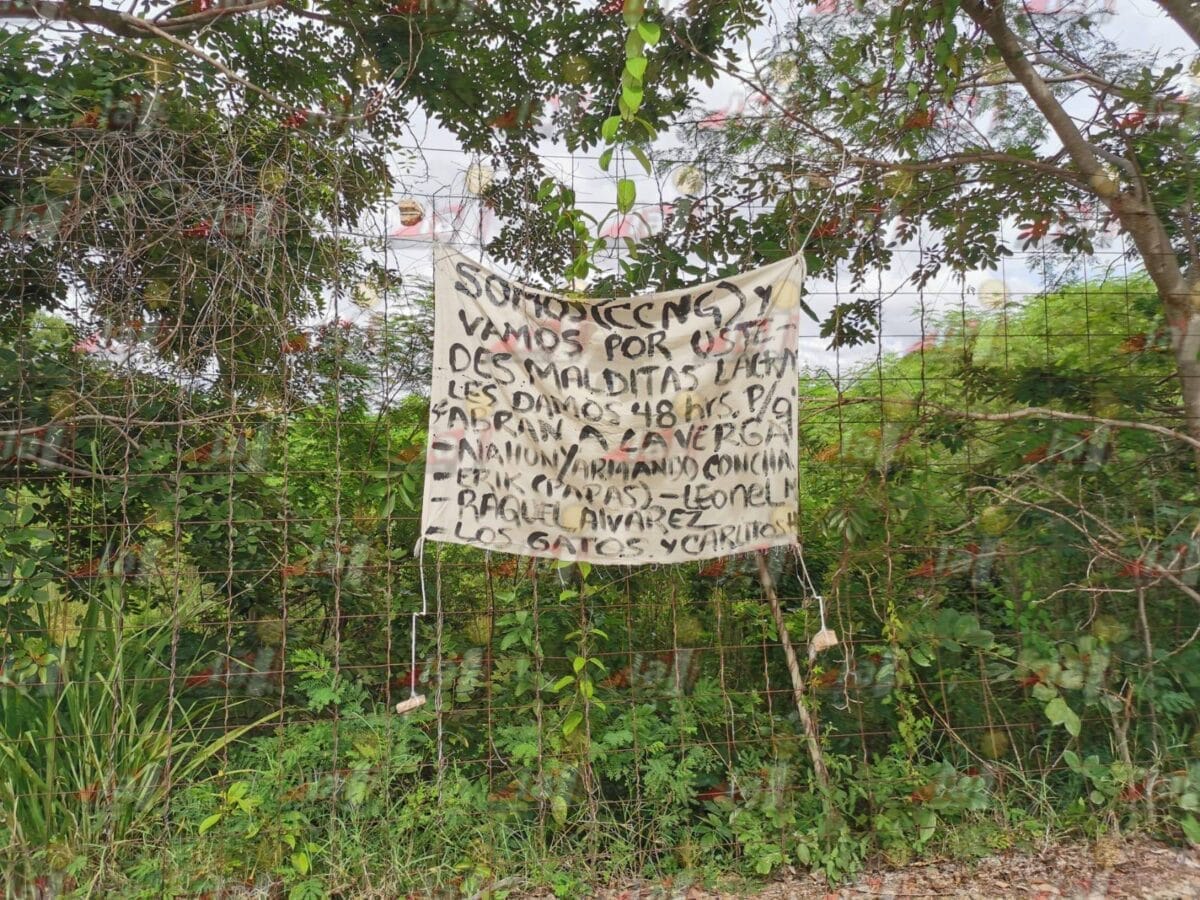 SOMOS (CCNG) Y
VAMOS POR USTE
DES MALDITAS
LES DAMOS 48 hrs. P/q
ABRAN A LA VERGA
- NAHUN/ARMANDO CONCHA
- ERIK (PAPAS) - LEONEL
- RAQUEL ALVAREZ
- LOS GATOS Y CARLITOS